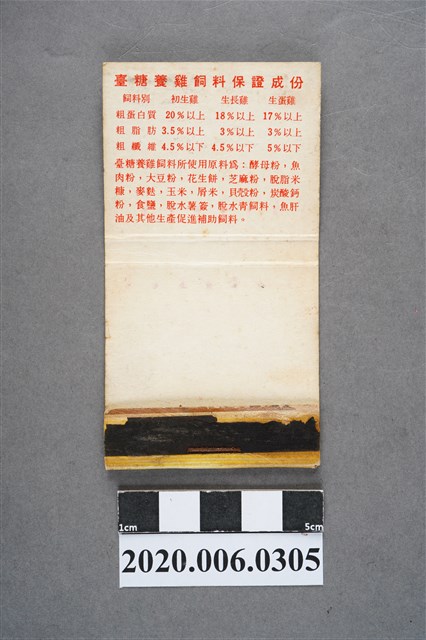 臺糖養雞飼料保證成份
飼料別 初生雞 生長雞 生蛋雞
粗蛋白質 20%以上 18%以上 17%以上
粗脂肪 3.5%以上 3%以上 3%以上
粗纖維 4.5%以下 4.5%以下 5%以下
臺糖養雞飼料所使用原料為：酵母粉，魚
肉粉，大豆粉，花生餅，芝麻粉，脫脂米
糠，麥麩，玉米，屑米，貝殼粉，炭酸鈣
粉，食鹽，脫水薯簽，脫水青飼料，魚肝
油及其他生產促進補助飼料。
1cm 5cm
2020.006.0305